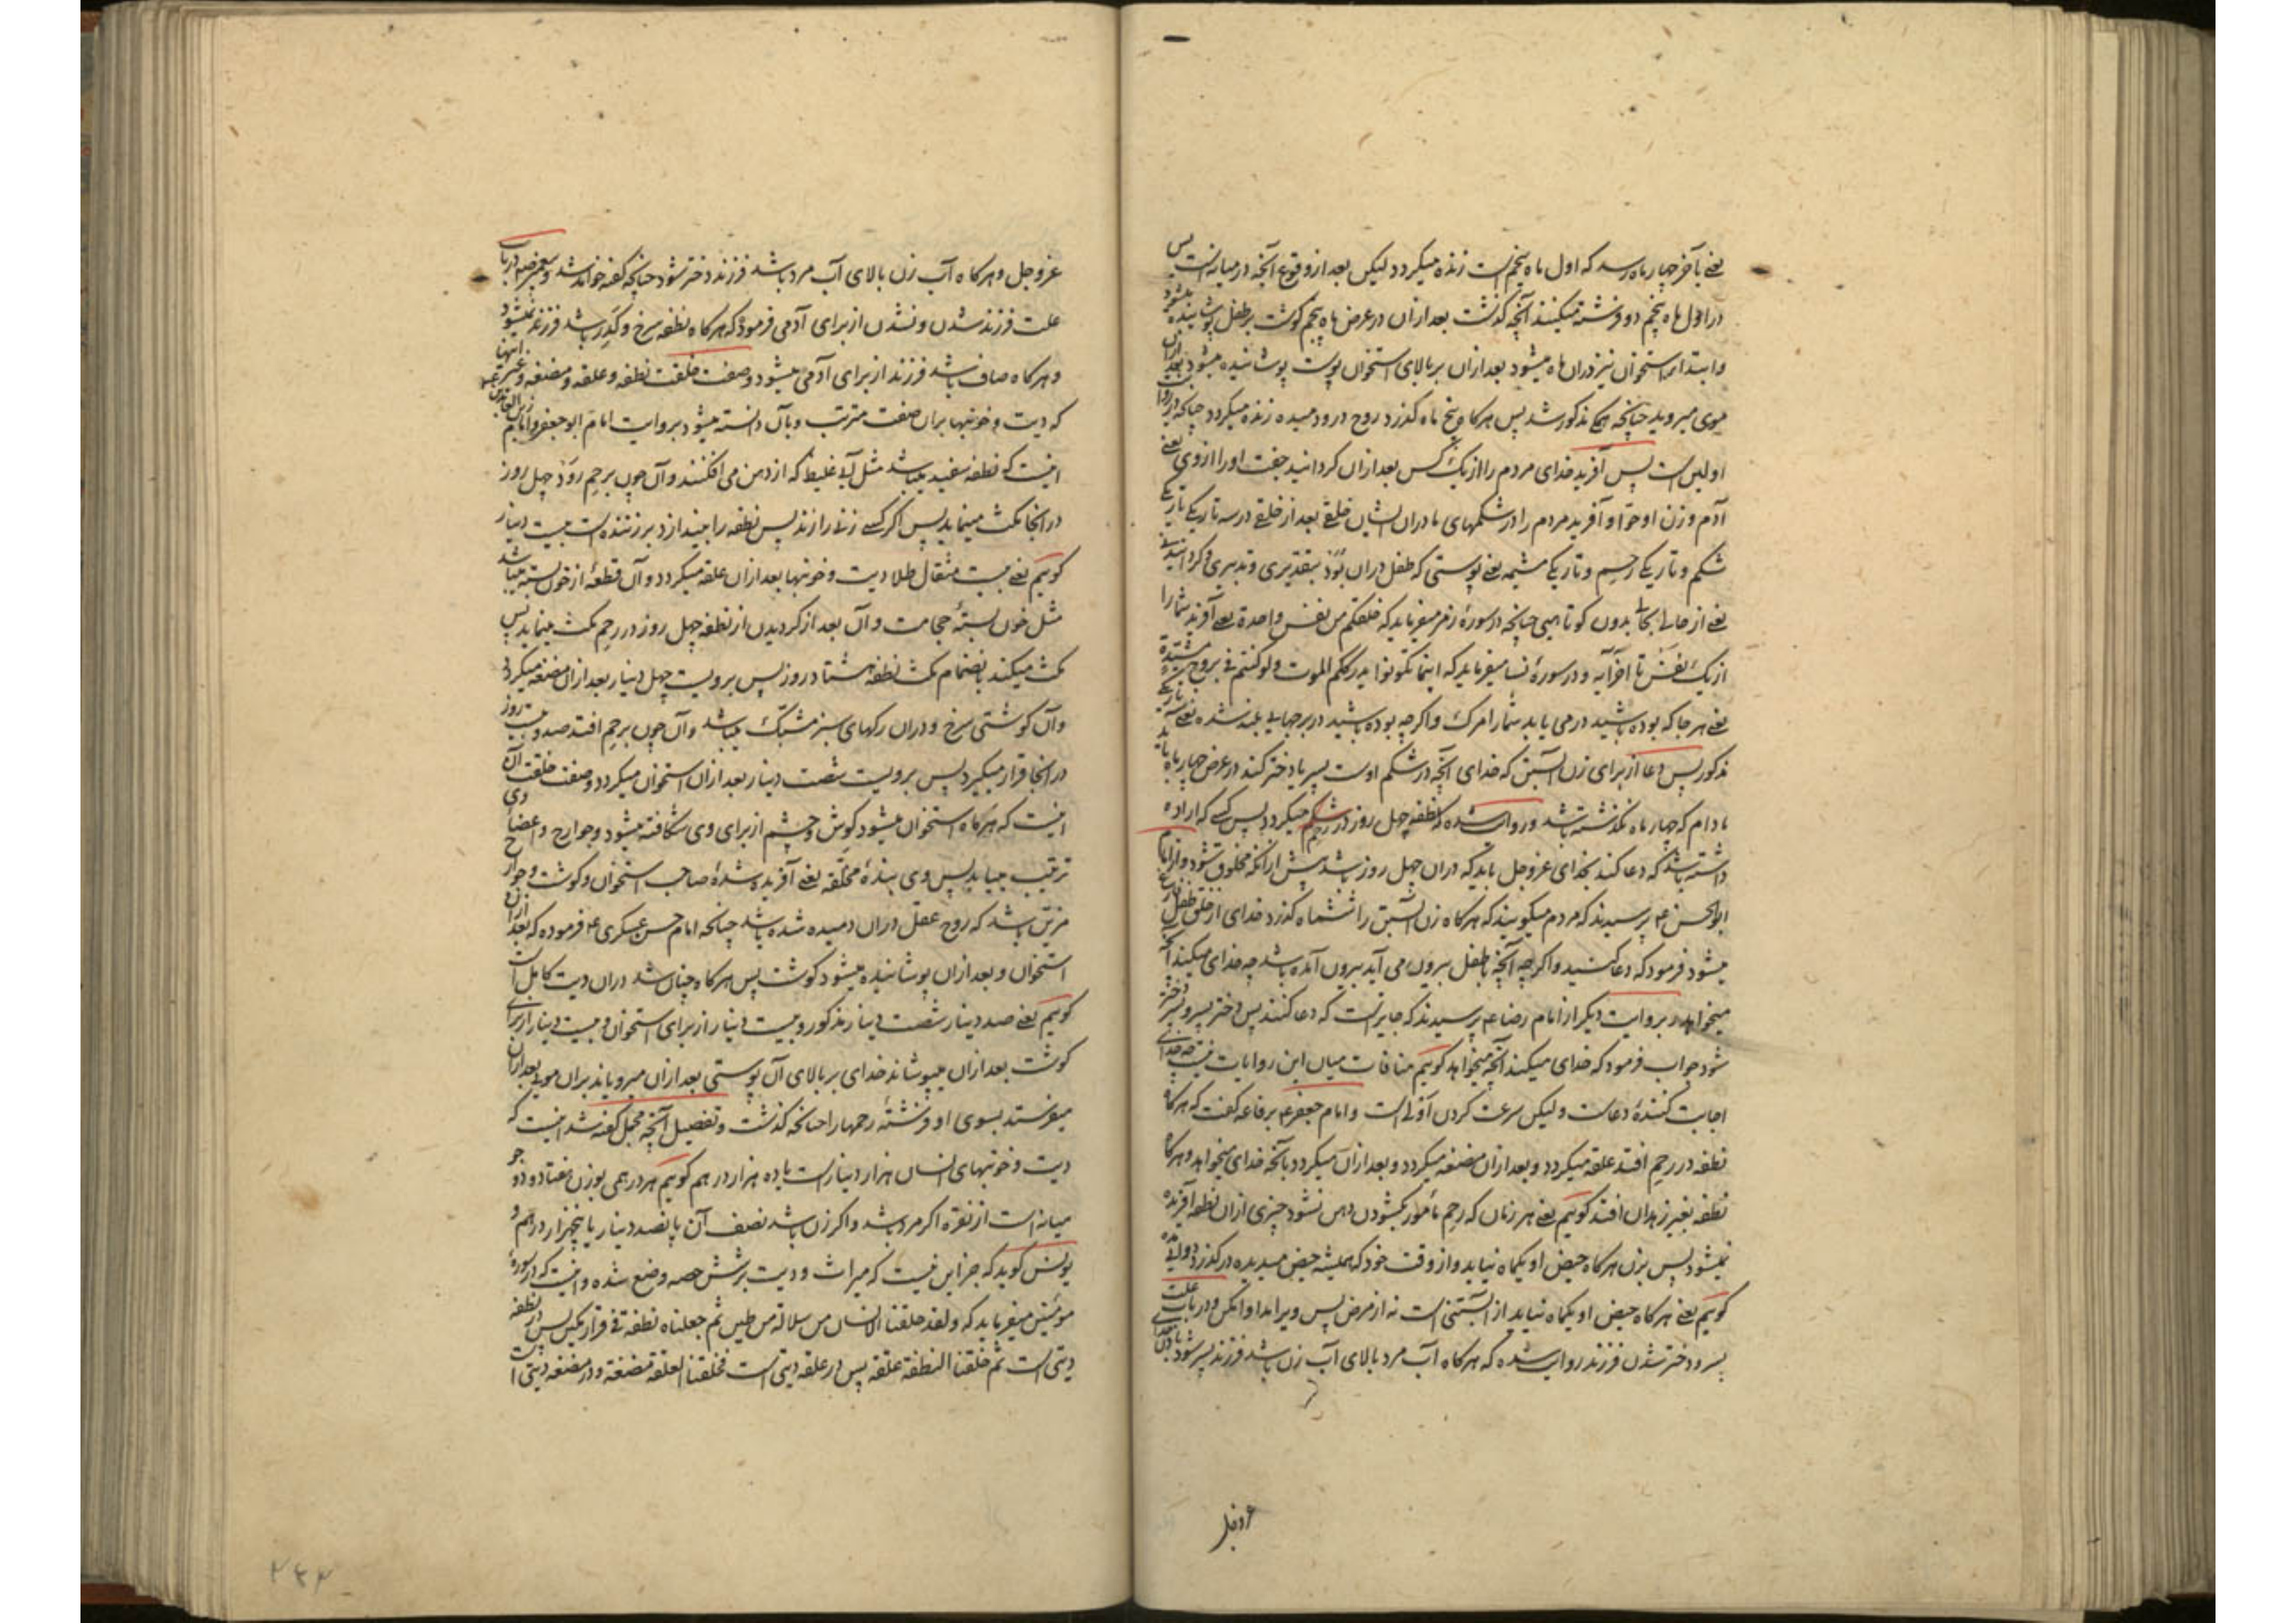 یعنی بآخر چهار ماه رسد که اول ماه پنجم است زنده میگردد لیکن بعد از وقوع آنچه در میانه است پس
در اول ماه پنجم دو فرشته میکنند آنچه گذشت بعد ازان در عرض ماه پنجم گوشت بر طفل پوشانیده میشود
و ابتداء استخوان نیز دران ماه میشود بعد ازان بر بالای استخوان پوست پوشانیده میشود بعد ازان
موی میروید چنانچه مذکور شد پس هرگاه پنج ماه گذرد روح درو دمیده زنده میگردد چنانکه در روایت
اولین است پس آفرید خدای مردم را از یک کس بعد ازان گردانید جفت او را ازوی یعنی
آدم و زن او حوا و آفرید مردم را در شکمهای مادران ایشان خلقی بعد از خلقی در سه تاریکی تاریکی
شکم و تاریکی رحم و تاریکی مشیمه یعنی پوستی که طفل دران بود بتقدیری و تدبیری و گردانیدنی
یعنی از حالی بحالی بدون کوتاهی چنانچه در سورهٔ زمر میفرماید که خلقکم من نفس واحدة یعنی آفرید شما را
از یک نفس تا آخر آیه و در سورهٔ نسا میفرماید که اینما تکونوا یدرککم الموت ولو کنتم فی بروج مشیدة
یعنی هر جا که بوده باشید در می یابد شما را مرگ و اگرچه بوده باشید در برجهای بلند شده یعنی
مذکور پس دعا از برای زن آبستن که خدای آنچه در شکم اوست پسر یا دختر کند در عرض چهار ماه باید
مادام که چهار ماه نگذشته باشد و روایت شده که نطفه چهل روز در رحم میگردد پس کسی که اراده
داشته باشد که دعا کند بخدای عزوجل باید که دران چهل روز باشد پیش از آنکه مخلوق شود و از امام
ابوالحسن ع پرسیدند که مردم میگویند که هرگاه زن آبستن را ششماه گذرد خدای از خلق طفل فارغ
میشود فرمود که دعا کنید و اگرچه آنچه با طفل بیرون می آید بیرون آمده باشد چه خدای میکند آنچه
میخواهد و بروایت دیگر از امام رضا ع پرسیدند که جایز است که دعا کنند پس دختر پسر و پسر دختر
شود جواب فرمود که خدای میکند آنچه میخواهد گوییم منافات میان این روایات نیست چه خدای
اجابت کنندهٔ دعاست و لیکن سرعت کردن اولی است و امام جعفر ع برفاعه گفت که هرگاه
نطفه در رحم افتد علقه میگردد و بعد ازان مضغه میگردد و بعد ازان میگردد بآنچه خدای میخواهد و هرگاه
نطفه بغیر زهدان افتد گوییم یعنی هر زمان که رحم مأمور بگشودن دهن نشود چیزی ازان نطفه آفریده
نمیشود پس بزن هرگاه حیض او یکماه نیاید و از وقت خود که همیشه حیض میدیده درگذرد دوا مده
گوییم یعنی هرگاه حیض او یکماه نیاید از آبستنی است نه از مرض پس ویرا مداوا مکن و در باب علت
پسر و دختر شدن فرزند روایت شده که هرگاه آب مرد بالای آب زن باشد فرزند پسر شود باذن خدای
عزوجل
عزوجل و هرگاه آب زن بالای آب مرد باشد فرزند دختر شود چنانچه گفته خواهد شد و پیغمبر ص در باب
علت فرزند شدن و نشدن از برای آدمی فرمود که هرگاه نطفه سرخ و کدر باشد فرزند نمیشود
و هرگاه صاف باشد فرزند از برای آدمی میشود و صفت خلقت نطفه و علقه و مضغه و غیر اینها
که دیت و خونبها بران صفت مترتب و بآن دانسته میشود بروایت امام ابوجعفر و امام زین العابدین
اینست که نطفه سفید میباشد مثل آب غلیظ که از دهن می افکنند و آن چون برحم رود چهل روز
در آنجا مکث مینماید پس اگر کسی زنی را زند پس نطفه را بیندازد بر زننده است بیست دینار
گوییم یعنی بیست مثقال طلا دیت و خونبها بعد ازان علقه میگردد و آن قطعهٔ از خون بسته میباشد
مثل خون بستهٔ حجامت و آن بعد از گردیدن از نطفه چهل روز در رحم مکث مینماید پس
مکث میکند بانضمام مکث نطفه هشتاد روز پس برویست چهل دینار بعد ازان مضغه میگردد
و آن گوشتی سرخ و دران رگهای سبز مشبک میباشد و آن چون برحم افتد صد و بیست روز
در آنجا قرار میگیرد پس برویست شصت دینار بعد ازان استخوان میگردد و صفت خلقت آن
اینست که هرگاه استخوان میشود گوش و چشم از برای وی شکافته میشود و جوارح و اعضای وی
ترتیب مییابد پس وی بندهٔ مخلقه یعنی آفریده شدهٔ صاحب استخوان و گوشت و جوارح
مزین باشد که روح عقل دران دمیده شده باشد چنانچه امام حسن عسکری ع فرموده که بعد ازان
استخوان و بعد ازان پوشانیده میشود گوشت پس هرگاه چنان شد دران دیت کامل است
گوییم یعنی صد دینار شصت دینار مذکور و بیست دینار از برای استخوان و بیست دینار از برای
گوشت بعد ازان میپوشاند خدای بر بالای آن پوستی بعد ازان میرویاند بران موی بعد ازان
میفرستد بسوی او فرشتهٔ رحمها را چنانچه گذشت و تفصیل آنچه مجمل گفته شد اینست که
دیت و خونبهای انسان هزار دینار است یا ده هزار درهم گوییم هر درهمی بوزن هفتاد و دو جو
میانه است از نقره اگر مرد باشد و اگر زن باشد نصف آن پانصد دینار یا پنجهزار درهم و
یونس گوید که جز این نیست که میراث و دیت بر شش حصه وضع شده و اینست که در سورهٔ
مومنین میفرماید که ولقد خلقنا الانسان من سلالة من طین ثم جعلناه نطفة فی قرار مکین پس در نطفه
دیتی است ثم خلقنا النطفة علقة پس در علقه دیتی است فخلقنا العلقة مضغة و در مضغه دیتی است
۲۳۳